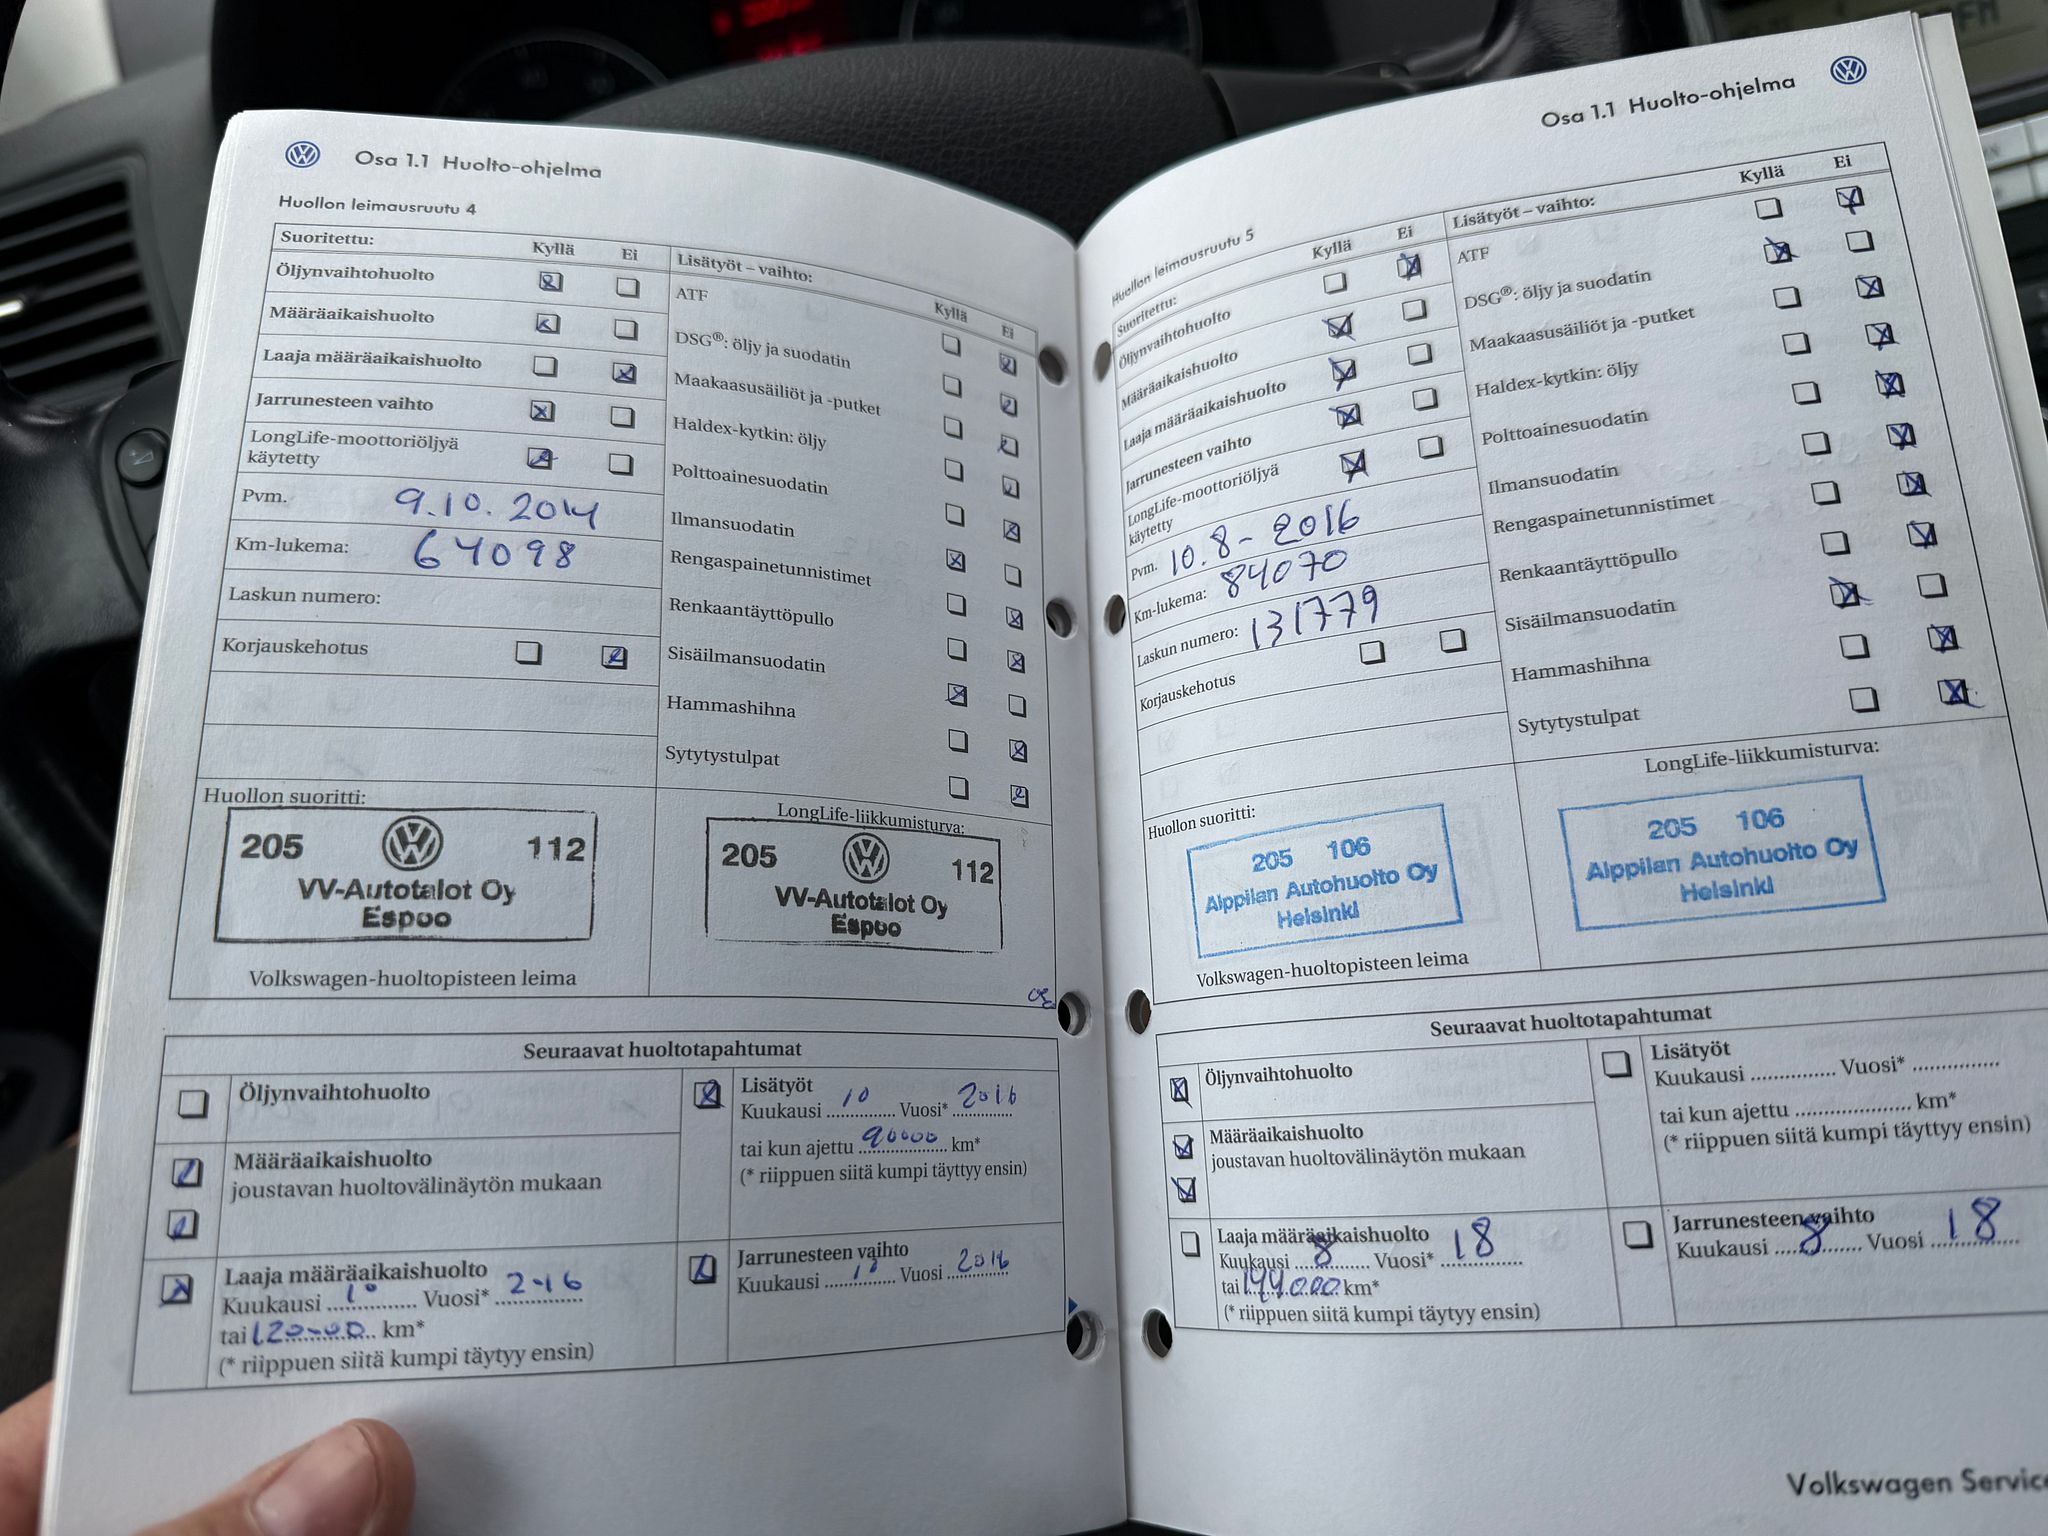 Osa 1.1 Huolto-ohjelma
Huollon leimausruutu 4
Suoritettu: Kyllä Ei
Öljynvaihtohuolto
Määräaikaishuolto
Laaja määräaikaishuolto
Jarrunesteen vaihto
LongLife-moottoriöljyä
käytetty
Pvm. 9.10.2014
Km-lukema: 64098
Laskun numero:
Korjauskehotus
Lisätyöt – vaihto:
Kyllä Ei
ATF
DSG®: öljy ja suodatin
Maakaasusäiliöt ja -putket
Haldex-kytkin: öljy
Polttoainesuodatin
Ilmansuodatin
Rengaspainetunnistimet
Renkaantäyttöpullo
Sisäilmansuodatin
Hammashihna
Sytytystulpat
Huollon suoritti:
205 112
VV-Autotalot Oy
Espoo
Volkswagen-huoltopisteen leima
LongLife-liikkumisturva:
205 112
VV-Autotalot Oy
Espoo
Seuraavat huoltotapahtumat
Öljynvaihtohuolto
Määräaikaishuolto
joustavan huoltovälinäytön mukaan
Laaja määräaikaishuolto
Kuukausi 10 Vuosi* 2016
tai 120000 km*
(* riippuen siitä kumpi täytyy ensin)
Lisätyöt
Kuukausi 10 Vuosi* 2016
tai kun ajettu 90000 km*
(* riippuen siitä kumpi täyttyy ensin)
Jarrunesteen vaihto
Kuukausi 10 Vuosi 2016
Osa 1.1 Huolto-ohjelma
Huollon leimausruutu 5
Suoritettu: Kyllä Ei
Öljynvaihtohuolto
Määräaikaishuolto
Laaja määräaikaishuolto
Jarrunesteen vaihto
LongLife-moottoriöljyä
käytetty
Pvm. 10.8-2016
Km-lukema: 84070
Laskun numero: 131779
Korjauskehotus
Lisätyöt – vaihto: Kyllä Ei
ATF
DSG®: öljy ja suodatin
Maakaasusäiliöt ja -putket
Haldex-kytkin: öljy
Polttoainesuodatin
Ilmansuodatin
Rengaspainetunnistimet
Renkaantäyttöpullo
Sisäilmansuodatin
Hammashihna
Sytytystulpat
Huollon suoritti:
205 106
Alppilan Autohuolto Oy
Helsinki
Volkswagen-huoltopisteen leima
LongLife-liikkumisturva:
205 106
Alppilan Autohuolto Oy
Helsinki
Seuraavat huoltotapahtumat
Öljynvaihtohuolto
Määräaikaishuolto
joustavan huoltovälinäytön mukaan
Laaja määräaikaishuolto
Kuukausi 8 Vuosi* 18
tai 144000 km*
(* riippuen siitä kumpi täytyy ensin)
Lisätyöt
Kuukausi Vuosi*
tai kun ajettu km*
(* riippuen siitä kumpi täyttyy ensin)
Jarrunesteen vaihto
Kuukausi 8 Vuosi 18
Volkswagen Service